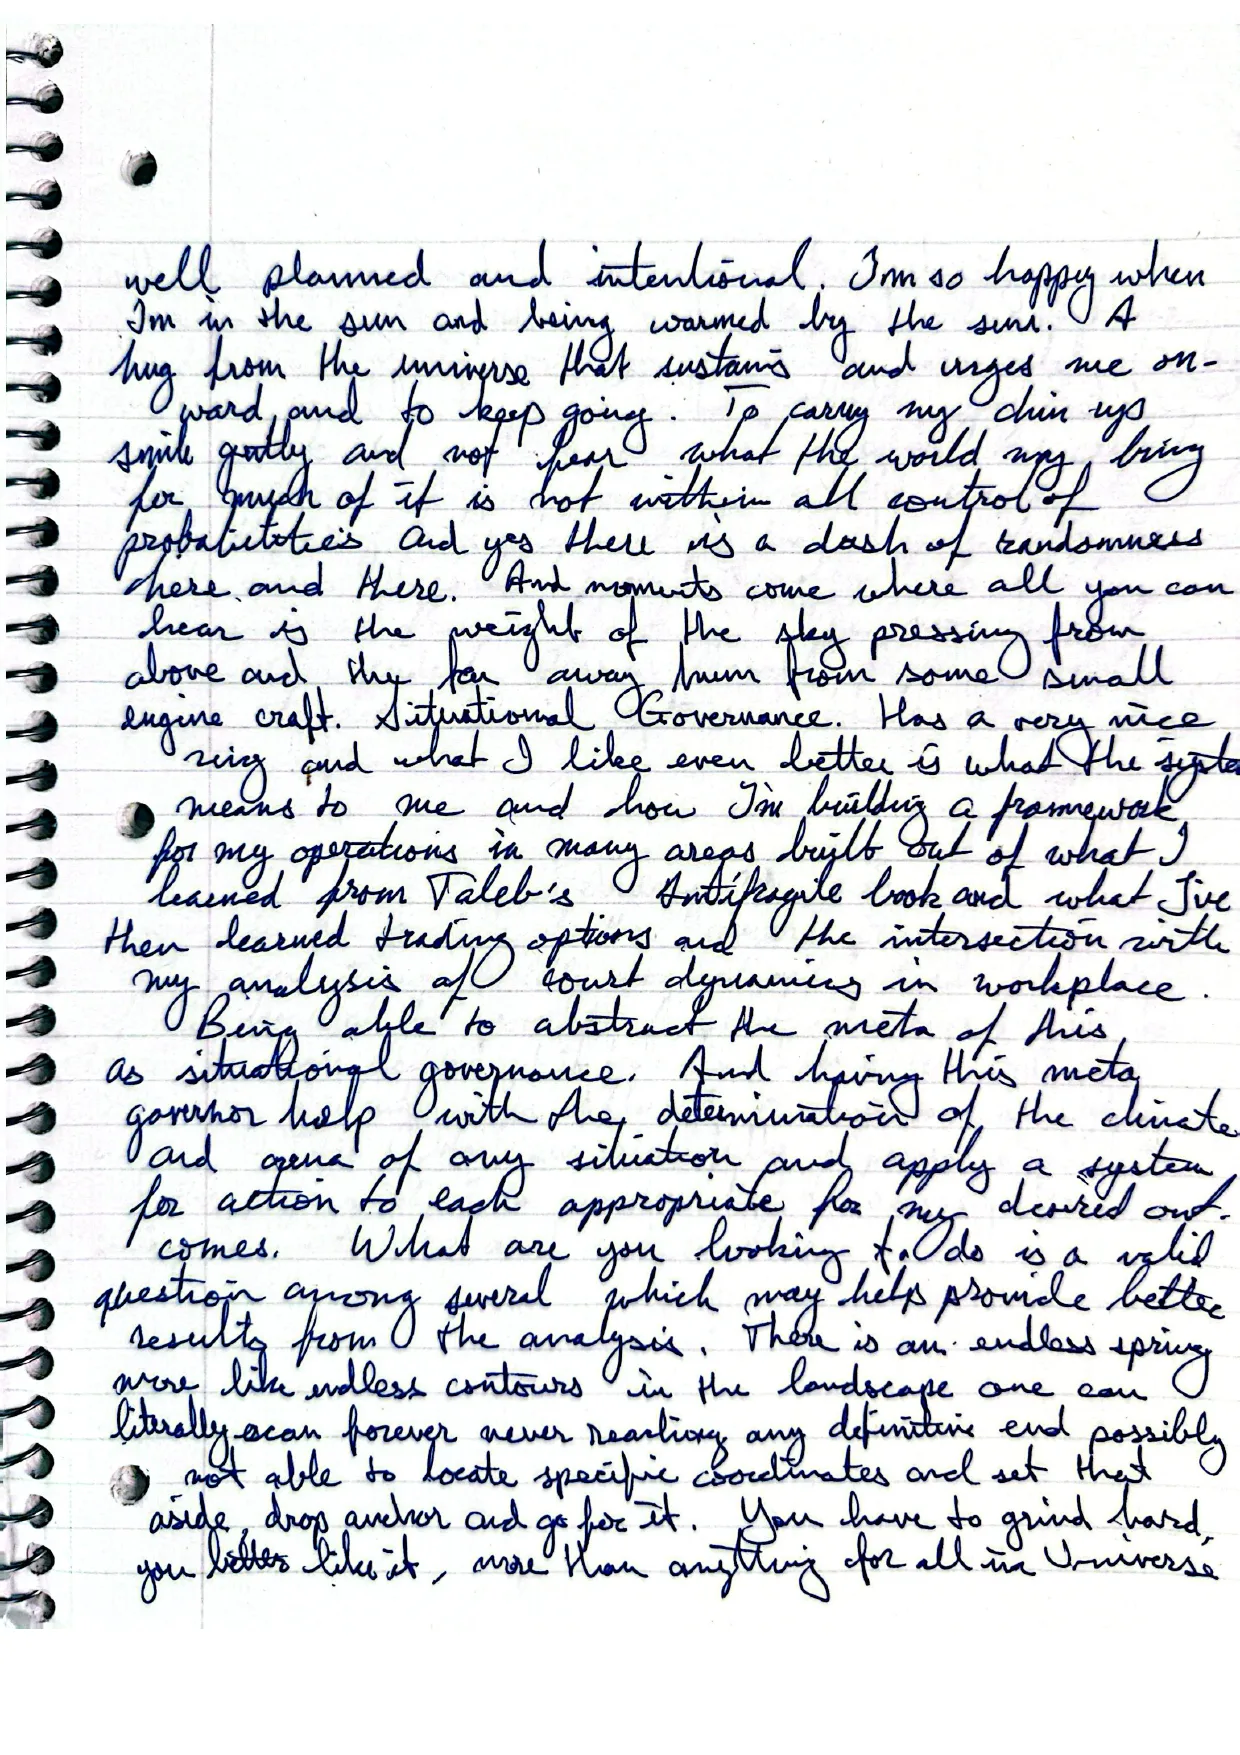 well planned and intentional. I'm so happy when
I'm in the sun and being warmed by the sun. A
hug from the universe that sustains and urges me on-
ward, and to keep going. To carry my chin up
smile gently and not fear what the world may bring
for much of it is not within all control of
probabilities and yes there is a dash of randomness
here and there. And moments come where all you can
hear is the weight of the sky pressing from
above and the far away hum from some small
engine craft. Situational Governance. Has a very nice
ring and what I like even better is what the system
means to me and how I'm building a framework
for my operations in many areas built out of what I
learned from Taleb's Antifragile book and what I've
then learned trading options and the intersection with
my analysis of court dynamics in workplace.
Being able to abstract the meta of this
as situational governance. And having this meta
governor help with the determination of the climate
and arena of any situation and apply a system
for action to each appropriate for my desired out-
comes. What are you looking to do is a valid
question among several which may help provide better
results from the analysis. There is an endless spring
more like endless contours in the landscape one can
literally scan forever never reaching any definitive end possibly
not able to locate specific coordinates and set that
aside, drop anchor and go for it. You have to grind hard,
you better like it, more than anything for all in Universe